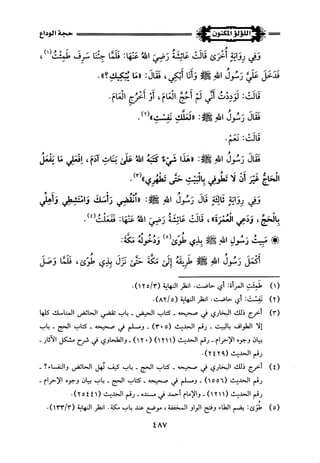 اللؤلؤ المكنون
حجة الوداع
وَفِي رِوَايَةٍ أُخْرَى قَالَتْ عَائِشَةُ رَضِيَ اللهُ عَنْهَا: فَلَمَّا جِئْنَا سَرِفَ طَمِثْتُ(١)،
فَدَخَلَ عَلَيَّ رَسُولُ اللهِ ﷺ وَأَنَا أَبْكِي، فَقَالَ: «مَا يُبْكِيكِ؟».
قَالَتْ: لَوَدِدْتُ أَنِّي لَمْ أَحُجَّ الْعَامَ، أَوْ أَخْرُجِ الْعَامَ.
فَقَالَ رَسُولُ اللهِ ﷺ: «لَعَلَّكِ نَفِسْتِ»(٢).
قَالَتْ: نَعَمْ.
فَقَالَ رَسُولُ اللهِ ﷺ: «هَذَا شَيْءٌ كَتَبَهُ اللهُ عَلَى بَنَاتِ آدَمَ، افْعَلِي مَا يَفْعَلُ
الْحَاجُّ غَيْرَ أَنْ لَا تَطُوفِي بِالْبَيْتِ حَتَّى تَطْهُرِي»(٣).
وَفِي رِوَايَةٍ ثَالِثَةٍ قَالَ رَسُولُ اللهِ ﷺ: «انْقُضِي رَأْسَكِ وَامْتَشِطِي وَأَهِلِّي
بِالْحَجِّ، وَدَعِي الْعُمْرَةَ»، قَالَتْ عَائِشَةُ رَضِيَ اللهُ عَنْهَا: فَفَعَلْتُ(٤).
مَبِيتُ رَسُولِ اللهِ ﷺ بِذِي طُوًى(٥) وَدُخُولُهُ مَكَّةَ:
أَكْمَلَ رَسُولُ اللهِ ﷺ طَرِيقَهُ إِلَى مَكَّةَ حَتَّى نَزَلَ بِذِي طُوًى، فَلَمَّا وَصَلَ
(١) طَمِثَتِ المرأة: أي حاضت. انظر النهاية (١٢٥/٣).
(٢) نَفِسْتِ: أي حاضت. انظر النهاية (٨٢/٥).
(٣) أخرج ذلك البخاري في صحيحه - كتاب الحيض - باب تقضي الحائض المناسك كلها
إلا الطواف بالبيت - رقم الحديث (٣٠٥) - ومسلم في صحيحه - كتاب الحج - باب
بيان وجوه الإحرام - رقم الحديث (١٢١١) (١٢٠) - والطحاوي في شرح مشكل الآثار -
رقم الحديث (٢٤٢٩).
(٤) أخرج ذلك البخاري في صحيحه - كتاب الحج - باب كيف تُهل الحائض والنفساء؟ -
رقم الحديث (١٥٥٦) - ومسلم في صحيحه - كتاب الحج - باب بيان وجوه الإحرام -
رقم الحديث (١٢١١) - والإمام أحمد في مسنده - رقم الحديث (٢٥٤٤١).
(٥) طُوًى: بضم الطاء وفتح الواو المخففة، موضع عند باب مكة. انظر النهاية (١٣٣/٣).
٤٨٧